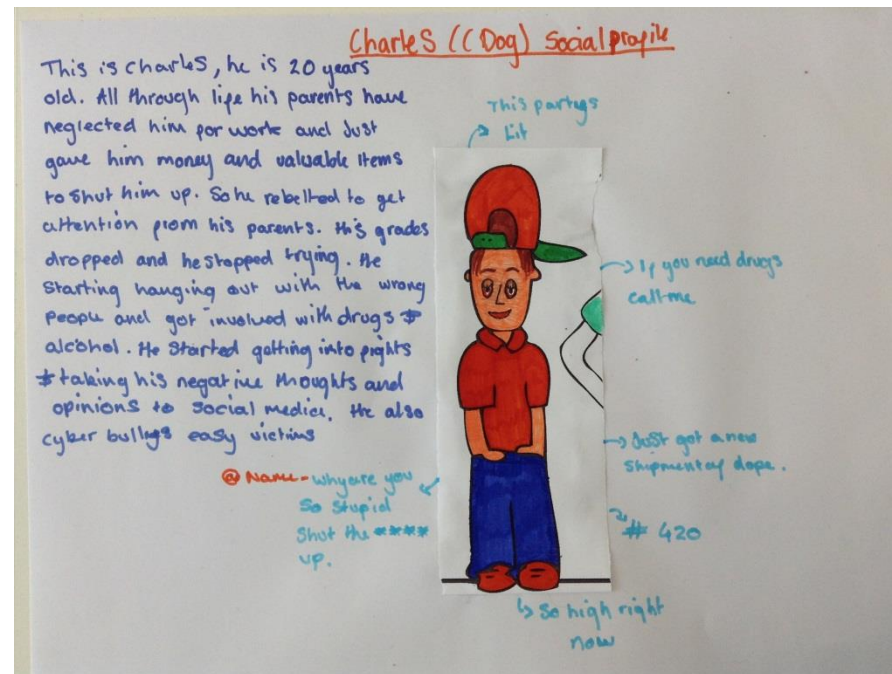 Charles ((Dog) Social profile
This is Charles, he is 20 years
old. All through life his parents have
neglected him for work and Just
gave him money and valuable items
to shut him up. So he rebelled to get
attention from his parents. His grades
dropped and he stopped trying. He
starting hanging out with the wrong
people and got involved with drugs &
alcohol. He started getting into fights
& taking his negative thoughts and
opinions to social media. He also
cyber bullys easy victims
This partys
Lit
If you need drugs
call me
Just got a new
shipment of dope.
# 420
So high right
now
@ Name - why are you
So Stupid
Shut the ****
up.